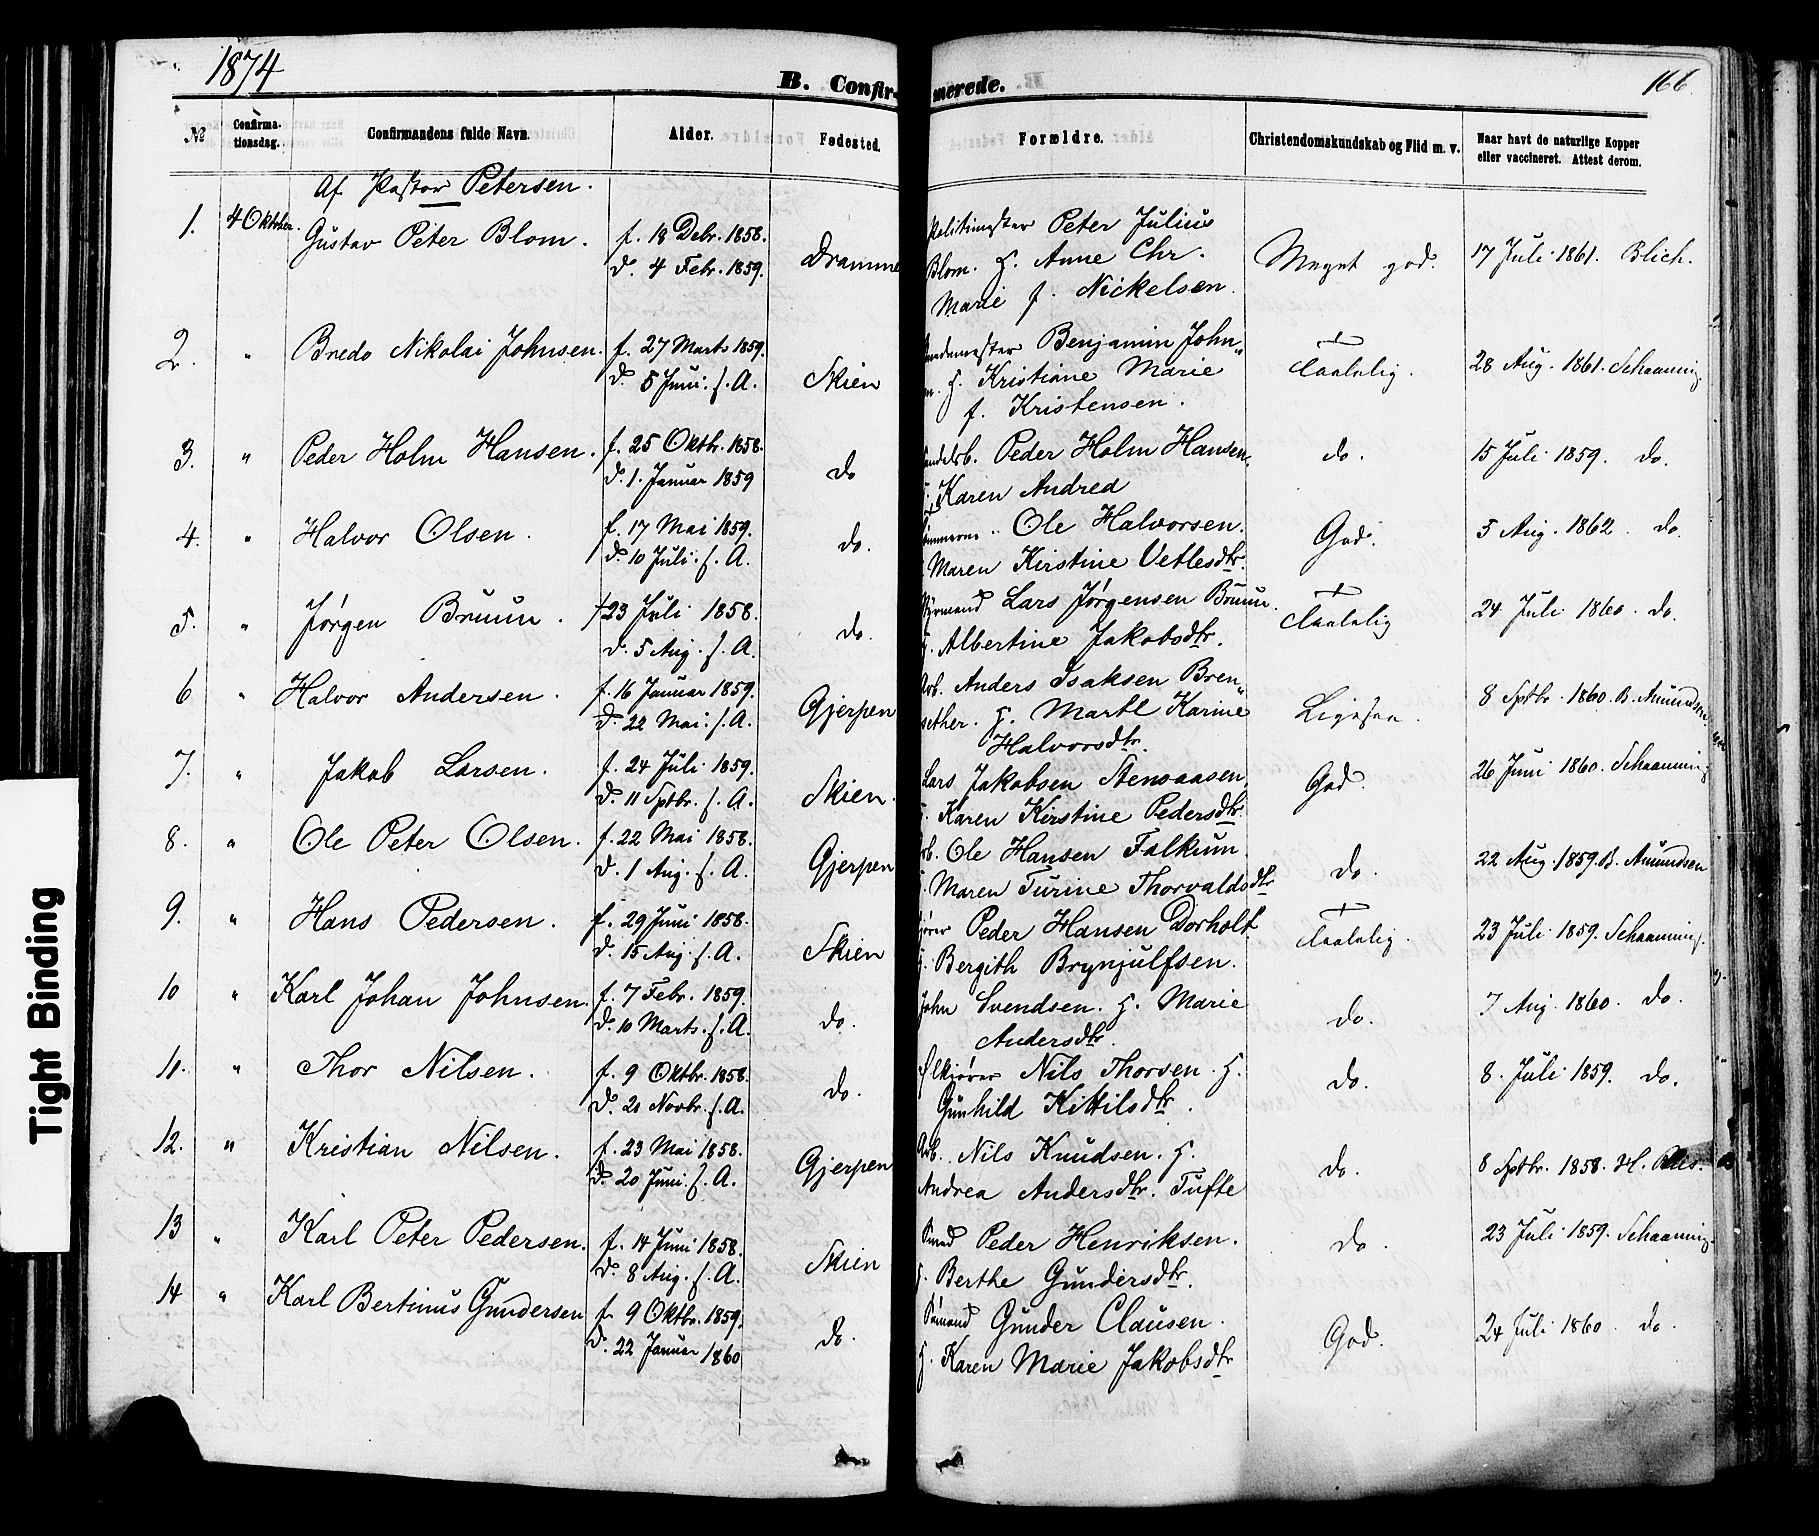 1874
B. Confir-
merede.
166.
№
Confirma-
tionsdag.
Confirmandens fulde Navn.
Alder.
Fødested.
Forældre.
Christendomskundskab og Flid m. v.
Naar havt de naturlige Kopper
eller vaccineret. Attest derom.
Af Pastor Petersen.
1. 4 Oktber. Gustav Peter Blom. f. 18 Debr. 1858.
d. 4 Febr. 1859. Dramme
Politimester Peter Julius
Blom. H. Anne Chr.
Marie f. Nickelsen.
Meget god. 17 Juli 1861. Blich.
2. " Bredo Nikolai Johnsen. f. 27 Marts 1859.
d. 5 Juni. s. A. Skien
Benjamin John„
H. Kristiane Marie
f. Kristensen.
Taalelig. 28 Aug. 1861. Schaanning.
3. " Peder Holm Hansen. f. 25 Oktbr. 1858.
d. 1. Januar 1859 do
Peder Holm Hansen.
Karen Andrea
do. 15 Juli 1859. do.
4. " Halvor Olsen. f. 17 Mai 1859.
d. 10 Juli. s. A. do.
Ole Halvorsen.
Maren Kirstine Vetlesdtr.
God. 5 Aug. 1862. do.
5. " Jørgen Bruun. f 23 Juli 1858.
d. 5 Aug. s. A. do.
Lars Jørgensen Bruun.
H. Albertine Jakobsdtr.
Taalelig 24 Juli 1860. do.
6 " Halvor Andersen. f. 16 Januar 1859.
d. 22 Mai. s. A. Gjerpen
Arb. Anders Isaksen Bren„
sether. H. Martl Karine
Halvorsdtr.
8 Sptbr. 1860. B. Amundsen.
7. " Jakob Larsen. f. 24 Juli 1859.
d. 11 Sptbr. s. A. Skien.
Lars Jakobsen Stensaasen
H. Karen Kirstine Pedersdtr.
God. 26 Juni 1860. Schaanning
8. " Ole Peter Olsen. f. 22 Mai 1858.
d. 1 Aug. s. A. Gjerpen
Ole Hansen Falkum
Maren Turine Thorvaldsdtr
do. 22 Aug. 1859. B. Amundsen
9. " Hans Pedersen. f. 29 Juni 1858.
d. 15 Aug. s. A. Skien
Peder Hansen Dorholt
H. Bergith Brynjulfsen.
Taalelig. 23 Juli 1859. Schaanning.
10 " Karl Johan Johnsen. f. 7 Febr. 1859.
d. 10 Marts. s. A. do.
John Svendsen. H. Marie
Andersdtr.
do. 7 Aug. 1860. do.
11. " Thor Nilsen. f. 9 Oktbr. 1858.
d. 20 Novbr. s. A. do.
Nils Thorsen. H.
Gunhild Kittilsdtr.
do. 8. Juli 1859. do.
12. " Kristian Nilsen. f. 23 Mai 1858.
d. 20 Juni. s. A. Gjerpen
Arb. Nils Knudsen. H.
Andrea Andersdtr. Tufte
do. 8 Sptbr. 1858. H.
13 " Karl Peter Pedersen. f. 14 Juni 1858.
d. 8 Aug. s. A. Skien
Smed Peder Henriksen.
H. Berthe Gundersdtr.
do. 23 Juli 1859. Schaanning.
14 " Karl Bertinus Gundersen f. 9 Oktbr. 1859.
d. 22 Januar 1860 do.
Sømand Gunder Clausen.
H. Karen Marie Jakobsdtr
God. 24 Juli 1860. do.
Tight Binding